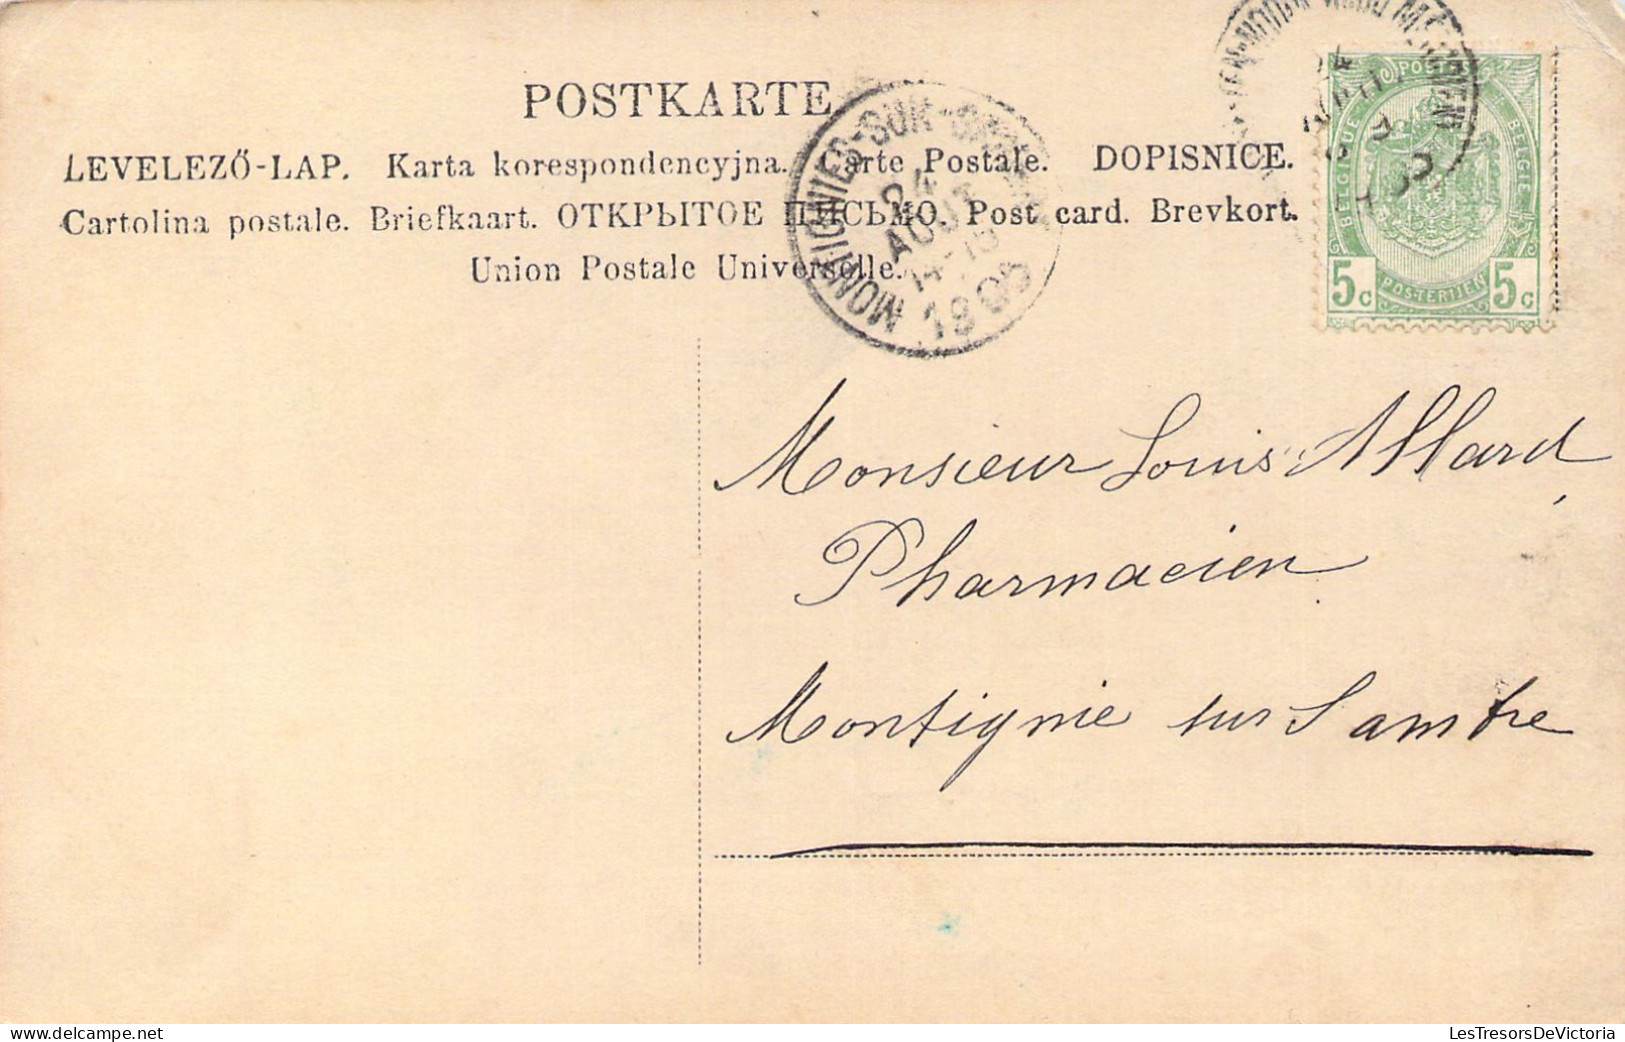 POSTKARTE
LEVELEZŐ-LAP. Karta korespondencyjna. Carte Postale. DOPISNICE.
Cartolina postale. Briefkaart. ОТКРЫТОЕ ПИСЬМО. Post card. Brevkort.
Union Postale Universelle.
MONTIGNIES-SUR-
24
AOUT
1905
POSTES
BELGIQUE
BELGIE
5c POSTERIJEN 5c
Monsieur Louis Allard
Pharmacien
Montignie sur Sambre
LesTresorsDeVictoria